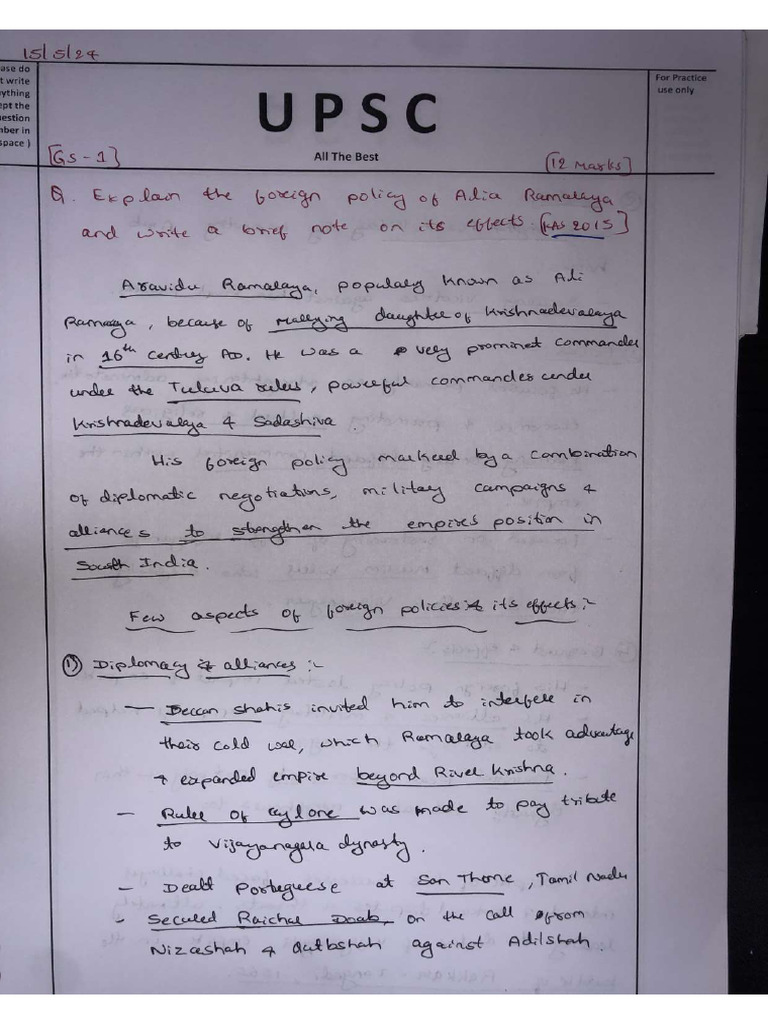 15/5/24
ase do
t write
ything
ept the
estion
nber in
space )
For Practice
use only
UPSC
All The Best
[GS-1]
[12 Marks]
Q. Explain the foreign policy of Alia Ramaraya
and write a brief note on its effects. [KAS 2015]
Aravidu Ramaraya, populary known as Ali
Ramaraya, because of Marrying daughter of Krishnadevaraya
in 16th century AD. He was a very prominet commander
under the Tuluva rulers, powerful commander under
Krishnadevaraya & Sadashiva.
His foreign policy marked by a combination
of diplomatic negotiations, military campaigns &
alliances to strengthen the empires position in
South India.
Few aspects of foreign policies & its effects :-
1) Diplomacy & alliances :-
— Deccan Shahis invited him to interfere in
their cold war, which Ramaraya took advantage
& expanded empire beyond River Krishna.
— Ruler of Cylone was made to pay tribute
to Vijayanagara dynasty.
- Dealt Porteguese at San Thome, Tamil Nadu
- Secured Raichur Doab, on the call from
Nizashah & Qutbshah against Adilshah.